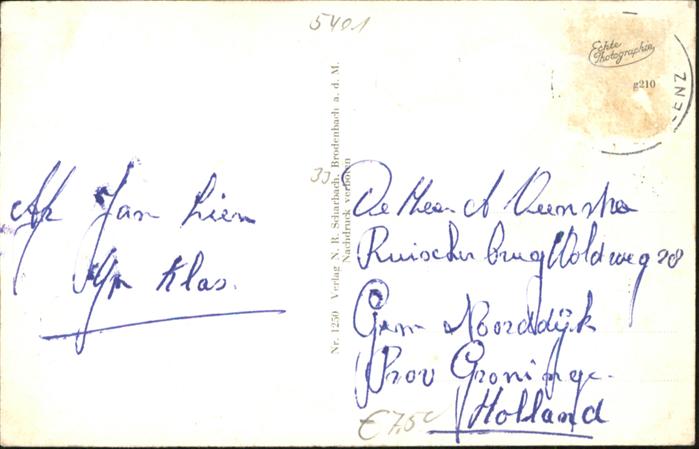 5401
Echte
Photographie
g210
ENZ
Nr. 1250 Verlag N. R. Scharbach, Brodenbach a. d. M.
Nachdruck verboten
33
Jan Lien
Klas.
De Heer A Veenstra
Ruischerbrug Woldweg 28
Gem Noorddijk
Prov Groninge.
Holland
€ 7,50